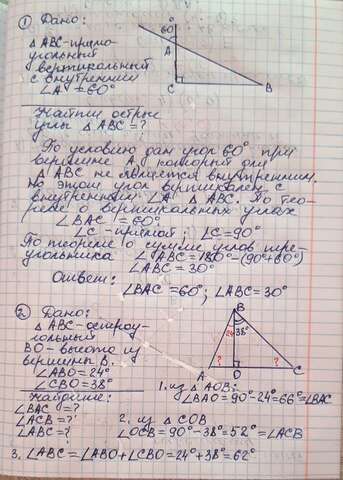 ① Дано:
△ABC-прямо-
угольный
вертикальный
с внутренним
∠A = 60°
60°
A
C
B
Найти острые
углы △ABC = ?
По условию дан угол 60° при
вершине A, который для
△ABC не является внутренним.
Но этот угол вертикален с
внутренним ∠A △ABC. По тео-
реме о вертикальных углах
∠BAC = 60°
∠C - прямой; ∠C = 90°
По теореме о сумме углов тре-
угольника ∠ABC = 180° - (90° + 60°)
∠ABC = 30°
Ответ:
∠BAC = 60°; ∠ABC = 30°
② Дано:
△ABC-остроу-
гольный
BO-высота из
вершины B.
∠ABO = 24°
∠CBO = 38°
B
24°
38°
?
?
A
O
C
Найдите:
∠BAC = ?
∠ACB = ?
∠ABC = ?
1. из △AOB:
∠BAO = 90° - 24° = 66° = ∠BAC
2. из △COB
∠OCB = 90° - 38° = 52° = ∠ACB
3. ∠ABC = ∠ABO + ∠CBO = 24° + 38° = 62°